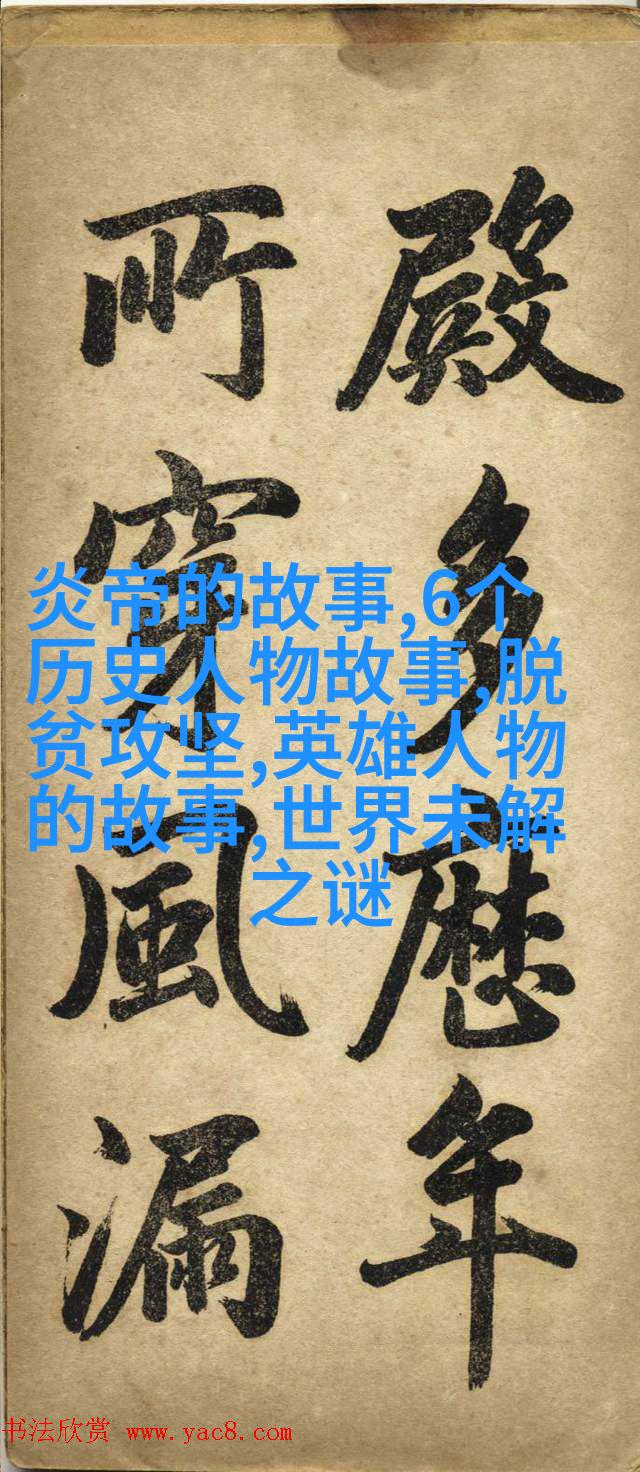 殿多歷年
所穿風漏
炎帝的故事,6个
历史人物故事,脱
贫攻坚,英雄人物
的故事,世界未解
之谜
书法欣赏 www.yac8.com